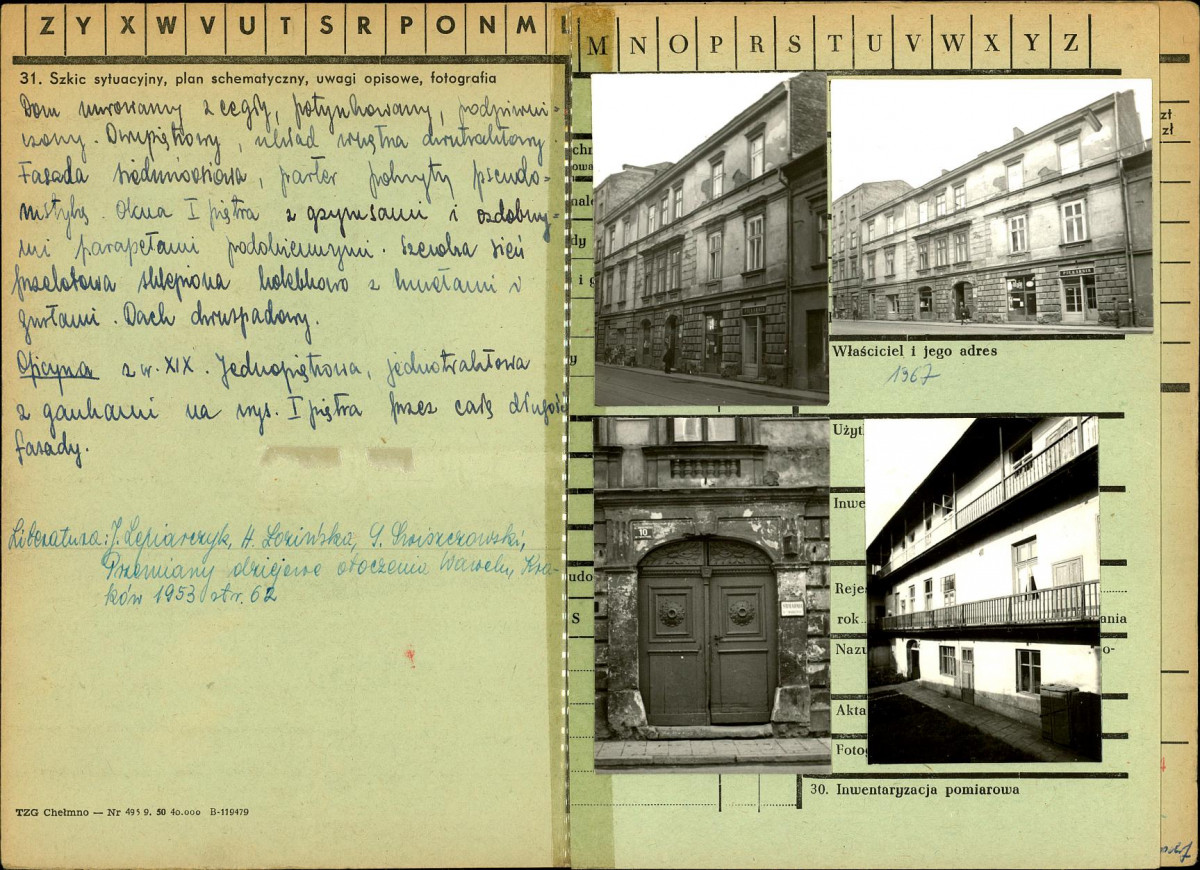 Z Y X W V U T S R P O N M
31. Szkic sytuacyjny, plan schematyczny, uwagi opisowe, fotografia
Dom murowany z cegły, potynkowany, podpiwni-
czony. Dwupiętrowy, układ wnętrza dwutraktowy.
Fasada siedmioosiowa, parter pokryty pseudo-
rustyką. Okna I piętra z gzymsami i ozdobny-
mi parapetami podokiennymi. Szeroka sień
przelotowa sklepiona kolebkowo z lunetami i
gurtami. Dach dwuspadowy.
Oficyna z w. XIX. Jednopiętrowa, jednotraktowa
z gankami na wys. I piętra przez całą długość
fasady.
Literatura: J. Lepiarczyk, H. Łozińska, S. Świszczowski,
Przemiany dziejowe otoczenia Wawelu, Kra-
ków 1953 str. 62
TZG Chełmno — Nr 495 9. 50 40.000 B-119479
M N O P R S T U V W X Y Z
Właściciel i jego adres
1967
Użyt
Inwe
Rejes
rok
ania
Nazu
o-
Akta
Fotog
30. Inwentaryzacja pomiarowa
10
zt
zł
chr
dy
i g
y
udo
S